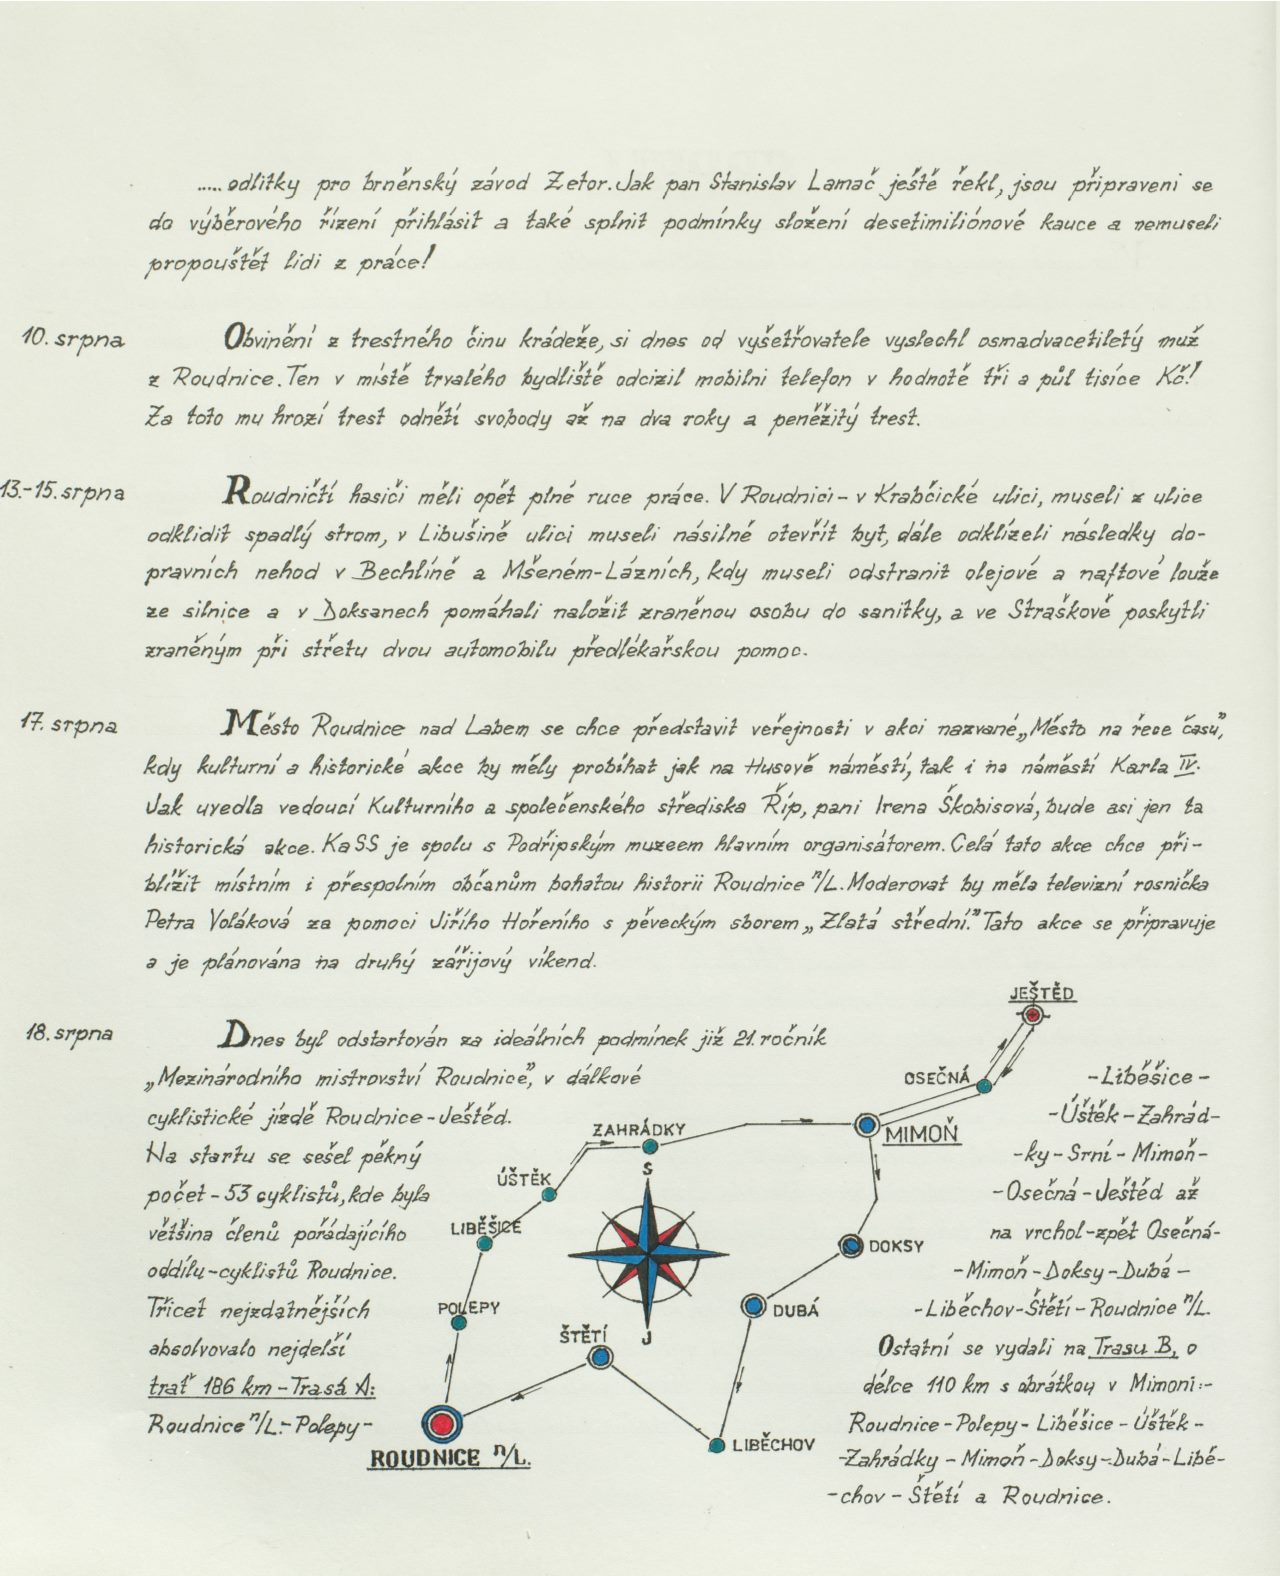 ..... odlitky pro brněnský závod Zetor. Jak pan Stanislav Lamač ještě řekl, jsou připraveni se
do výběrového řízení přihlásit a také splnit podmínky složení desetimiliónové kauce a nemuseli
propouštět lidi z práce!
10. srpna Obvinění z trestného činu krádeže, si dnes od vyšetřovatele vyslechl osmadvacetiletý muž
z Roudnice. Ten v místě trvalého bydliště odcizil mobilni telefon v hodnotě tři a půl tisíce Kč!
Za toto mu hrozí trest odnětí svobody až na dva roky a peněžitý trest.
13.-15. srpna Roudničtí hasiči měli opět plné ruce práce. V Roudnici - v Krabčické ulici, museli z ulice
odklidit spadlý strom, v Libušině ulici museli násilně otevřít byt, dále odklízeli následky do-
pravních nehod v Bechlíně a Mšeném-Lázních, kdy museli odstranit olejové a naftové louže
ze silnice a v Doksanech pomáhali naložit zraněnou osobu do sanitky, a ve Straškově poskytli
zraněným při střetu dvou automobilu předlékařskou pomoc.
17. srpna Město Roudnice nad Labem se chce představit veřejnosti v akci nazvané „Město na řece času",
kdy kulturní a historické akce by měly probíhat jak na Husově náměstí, tak i na náměstí Karla IV.
Jak uvedla vedoucí Kulturního a společenského střediska Říp, pani Irena Škobisová, bude asi jen ta
historická akce. KaSS je spolu s Podřipským muzeem hlavním organisátorem. Celá tato akce chce při-
blížit místním i přespolním občanům bohatou historii Roudnice n/L. Moderovat by měla televizní rosnička
Petra Voláková za pomoci Jiřího Hořeního s pěveckým sborem „Zlatá střední." Tato akce se připravuje
a je plánována na druhý zářijový víkend.
18. srpna Dnes byl odstartován za ideálních podmínek již 21. ročník
„Mezinárodního mistrovství Roudnice", v dálkové
cyklistické jízdě Roudnice - Ještěd.
Na startu se sešel pěkný
počet - 53 cyklistů, kde byla
většina členů pořádajícího
oddílu - cyklistů Roudnice.
Třicet nejzdatnějších
absolvovalo nejdelší
trať 186 km - Trasá A:
Roudnice n/L. - Polepy -
- Liběšice -
- Úštěk - Zahrád-
- ky - Srní - Mimoň -
- Osečná - Ještěd až
na vrchol - zpět Osečná -
- Mimoň - Doksy - Dubá -
- Liběchov - Štětí - Roudnice n/L.
Ostatní se vydali na Trasu B, o
délce 110 km s obrátkou v Mimoni: -
Roudnice - Polepy - Liběšice - Úštěk -
- Zahrádky - Mimoň - Doksy - Dubá - Libě-
- chov - Štětí a Roudnice.
JEŠTĚD
OSEČNÁ
MIMOŇ
ZAHRÁDKY
ÚŠTĚK
LIBĚŠICE
POLEPY
S
J
DOKSY
DUBÁ
ŠTĚTÍ
LIBĚCHOV
ROUDNICE n/L.